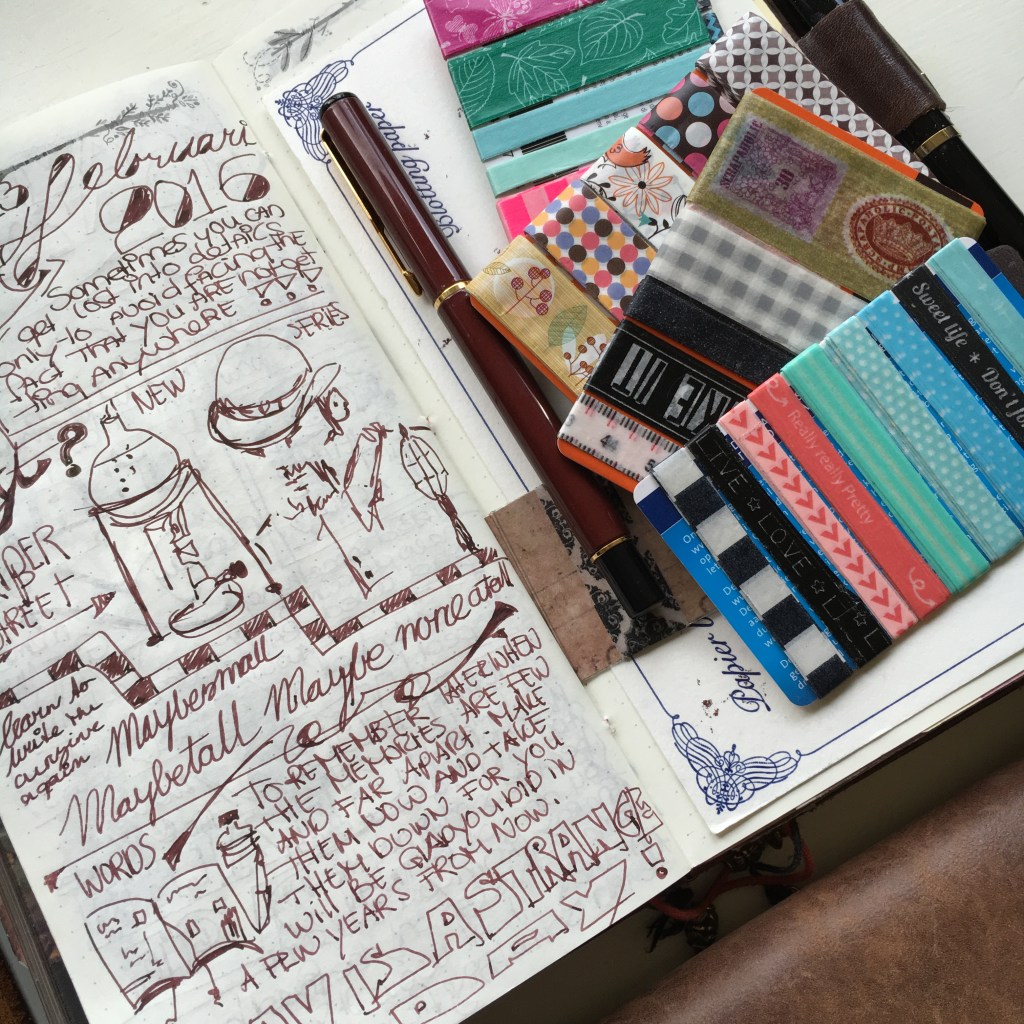 Februari
2016
Sometimes you can
get lost into details
only to avoid facing the
fact that you are not get
ting anywhere
NEW
SERIES
?
learn to
write the
cursive
again
Maybe small
Maybe tall Maybe none at all
WORDS
TO REMEMBER LATER WHEN
THE MEMORIES ARE FEW
AND FAR APART. MAKE
THEM NOW AND TAKE
THEM DOWN FOR YOU
WILL BE GLAD YOU DID IN
A FEW YEARS FROM NOW.
IS A STRANGE
blotting paper
Papier
30
4
5
Sweet life * Don't
Really really Pretty
LIVE ☆ LOVE ☆